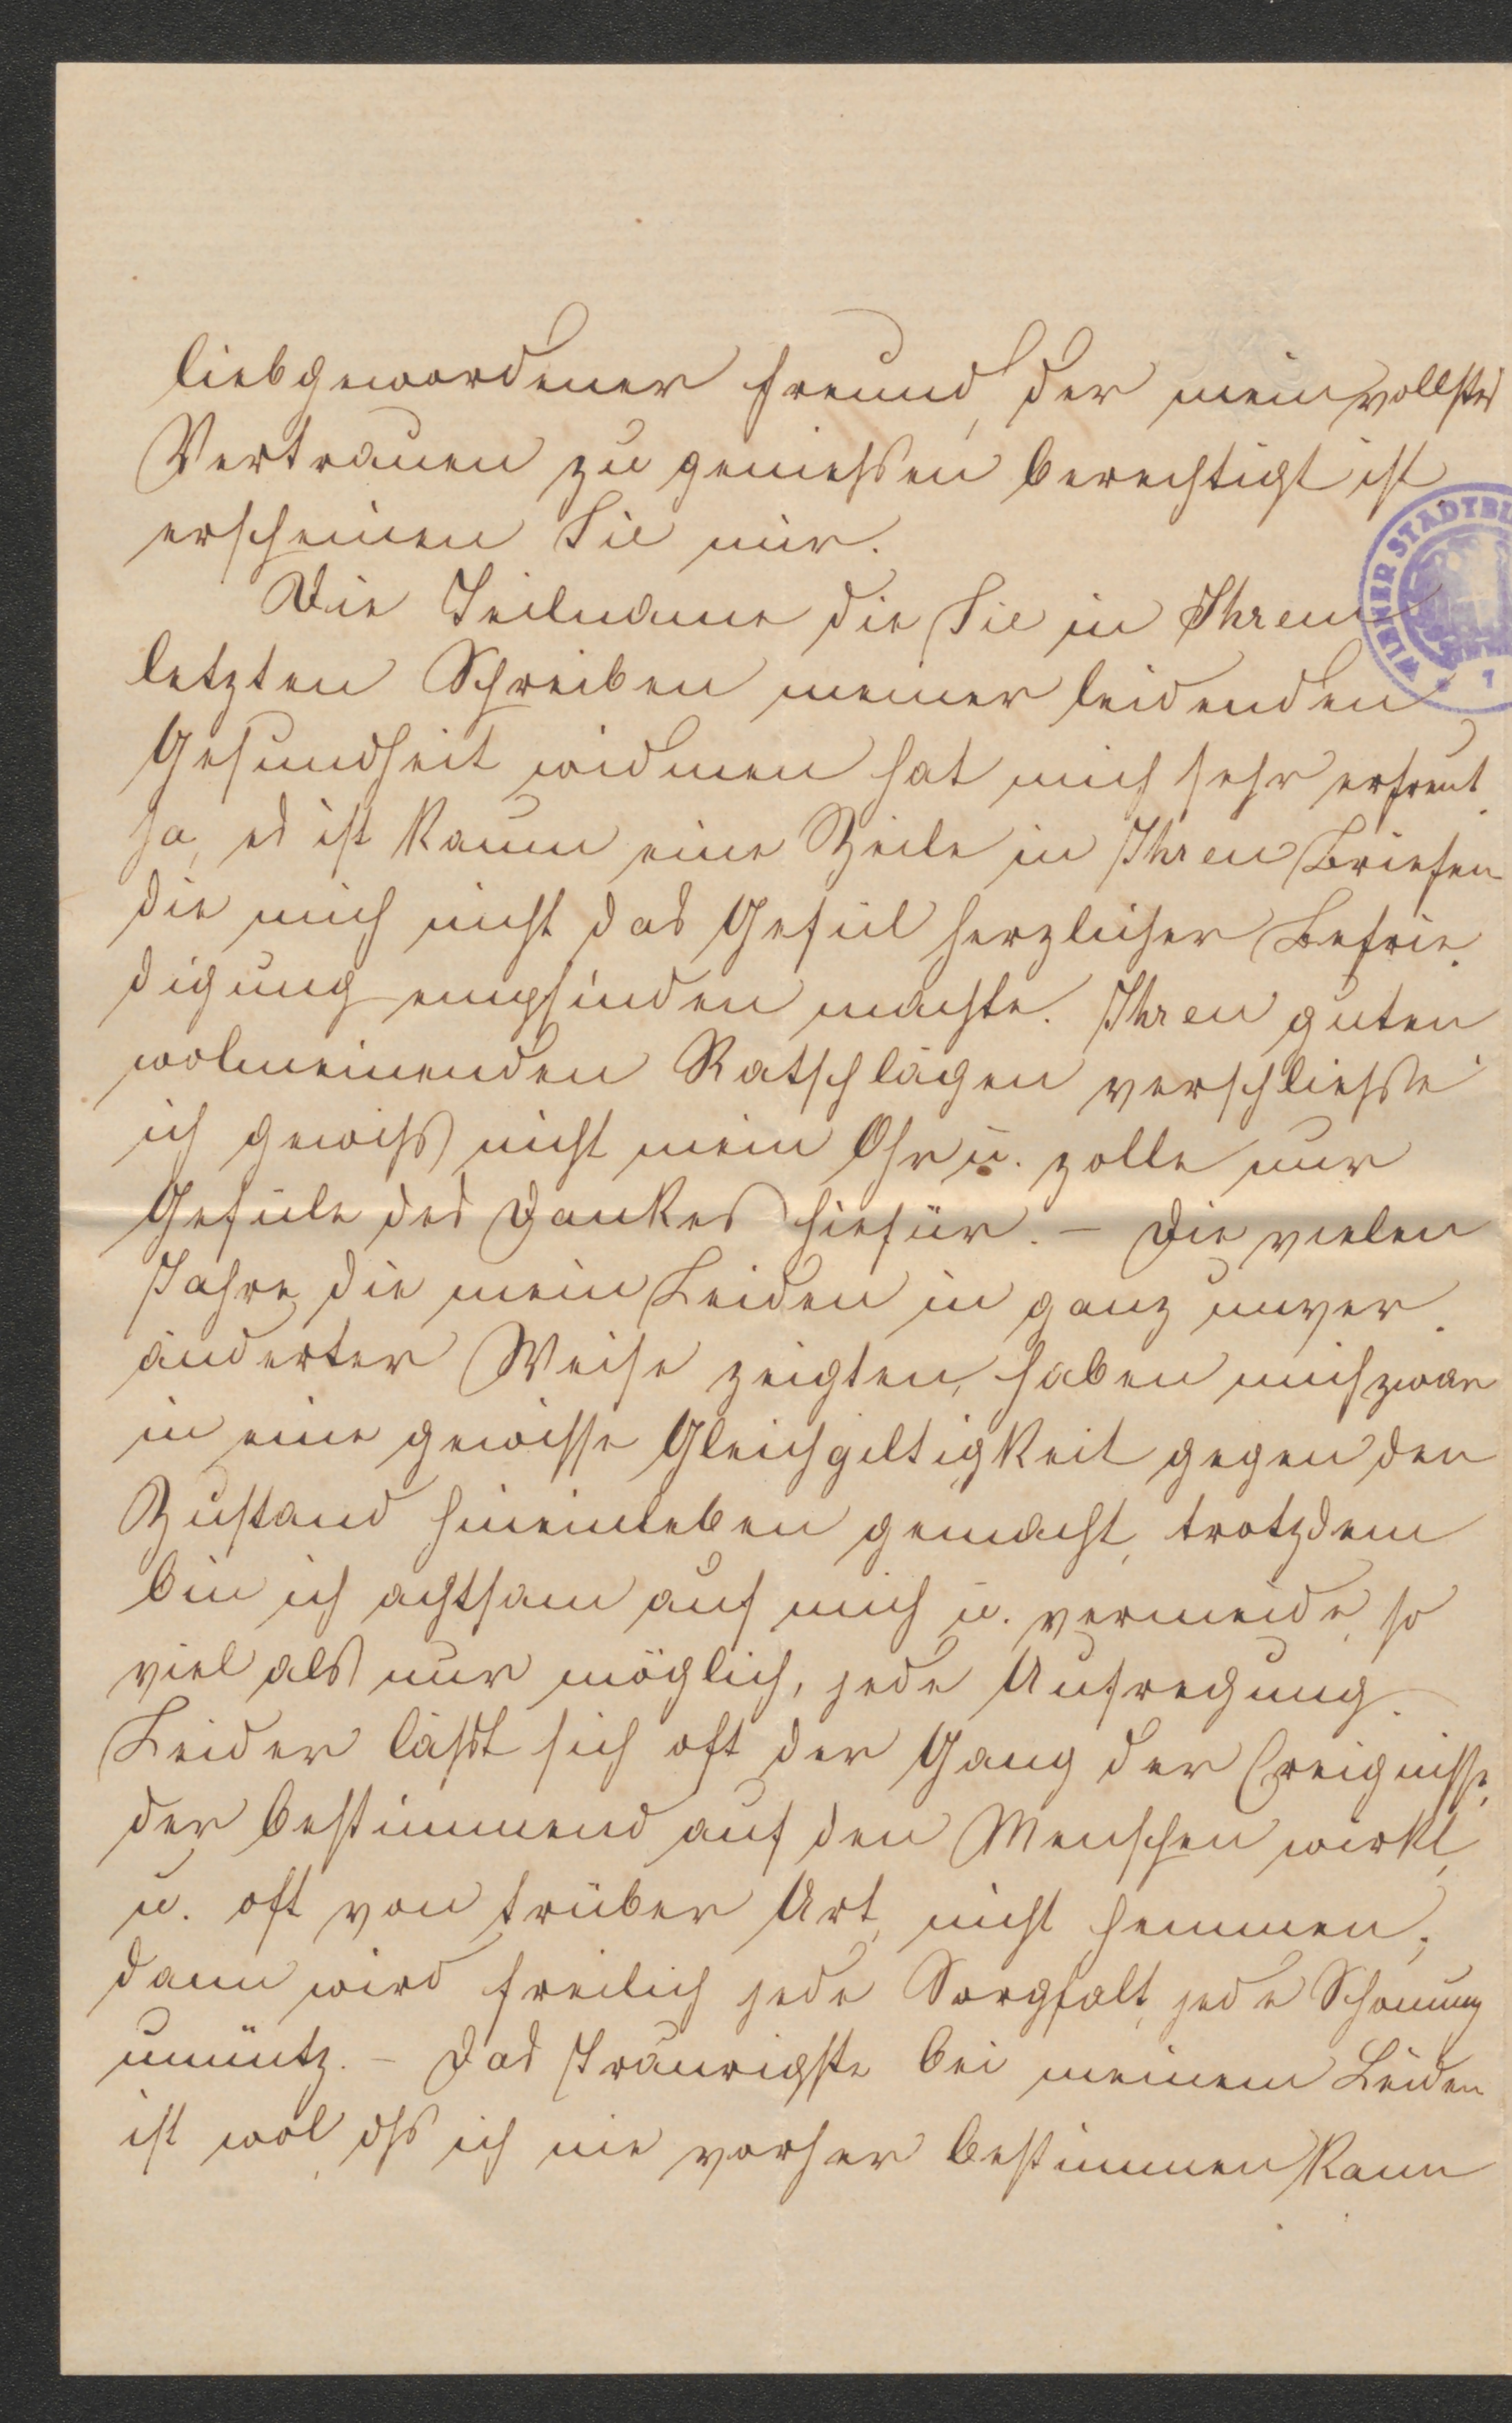 liebgewordener Freund, der mein vollstes
Vertrauen zu geniessen berechtigt ist
erscheinen Sie mir.
WIENER STADTBI
Die Teilname die Sie in Ihrem
letzten Schreiben meiner leidenden
* 1
Gesundheit widmen hat mich sehr erfreut.
Ja, es ist kaum eine Zeile in Ihren Briefen
die mich nicht das Gefül herzlicher Befrie-
digung empfinden machte. Ihren guten
wolmeinenden Ratschlägen verschliesse
ich gewiss nicht mein Ohr u. zolle nur
Gefüle des Dankes hiefür. – Die vielen
Jahre, die mein Leiden in ganz unver-
änderter Weise zeigten, haben mich zwar
in eine gewisse Gleichgiltigkeit gegen den
Zustand hineinleben gemacht, trotzdem
bin ich achtsam auf mich u. vermeide, so
viel als nur möglich, jede Aufregung.
Leider lässt sich oft der Gang der Ereignisse,
der bestimmend auf den Menschen wirkt,
u. oft von trüber Art, nicht hemmen;
dann wird freilich jede Sorgfalt, jede Schonung
unnütz. – Das Traurigste bei meinem Leiden
ist wol, dss ich nie vorher bestimmen kann